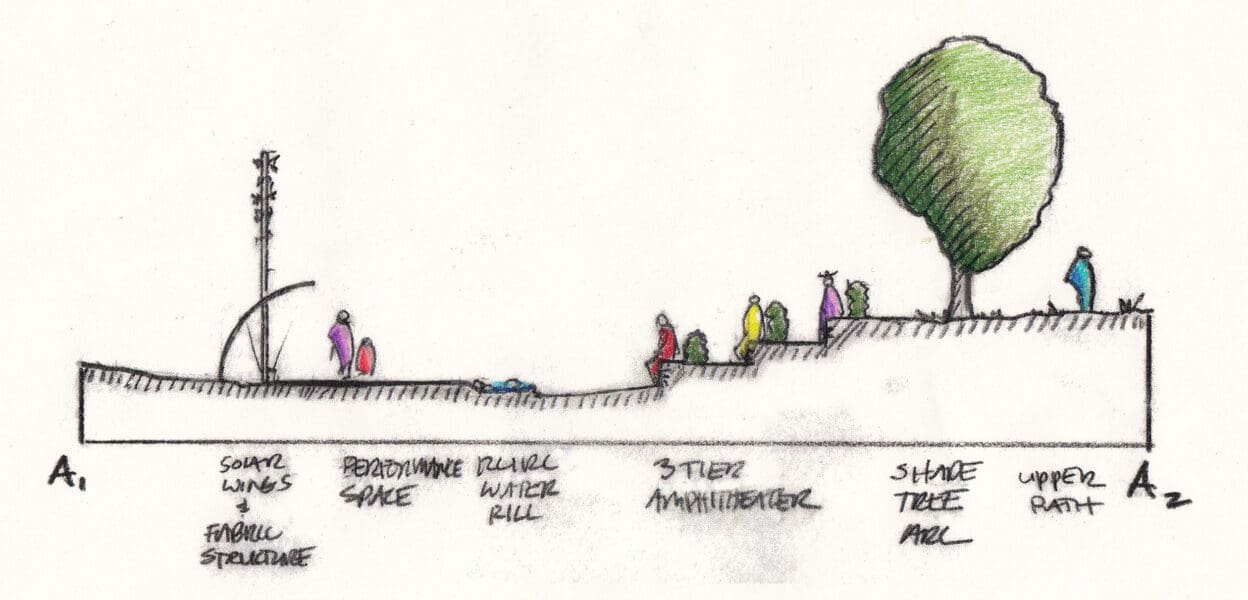 A1
SOLAR
WINGS
&
FABRIC
STRUCTURE
PERFORMANCE
SPACE
WATER
RILL
3 TIER
AMPHITHEATER
SHADE
TREE
ARC
UPPER
PATH
A2